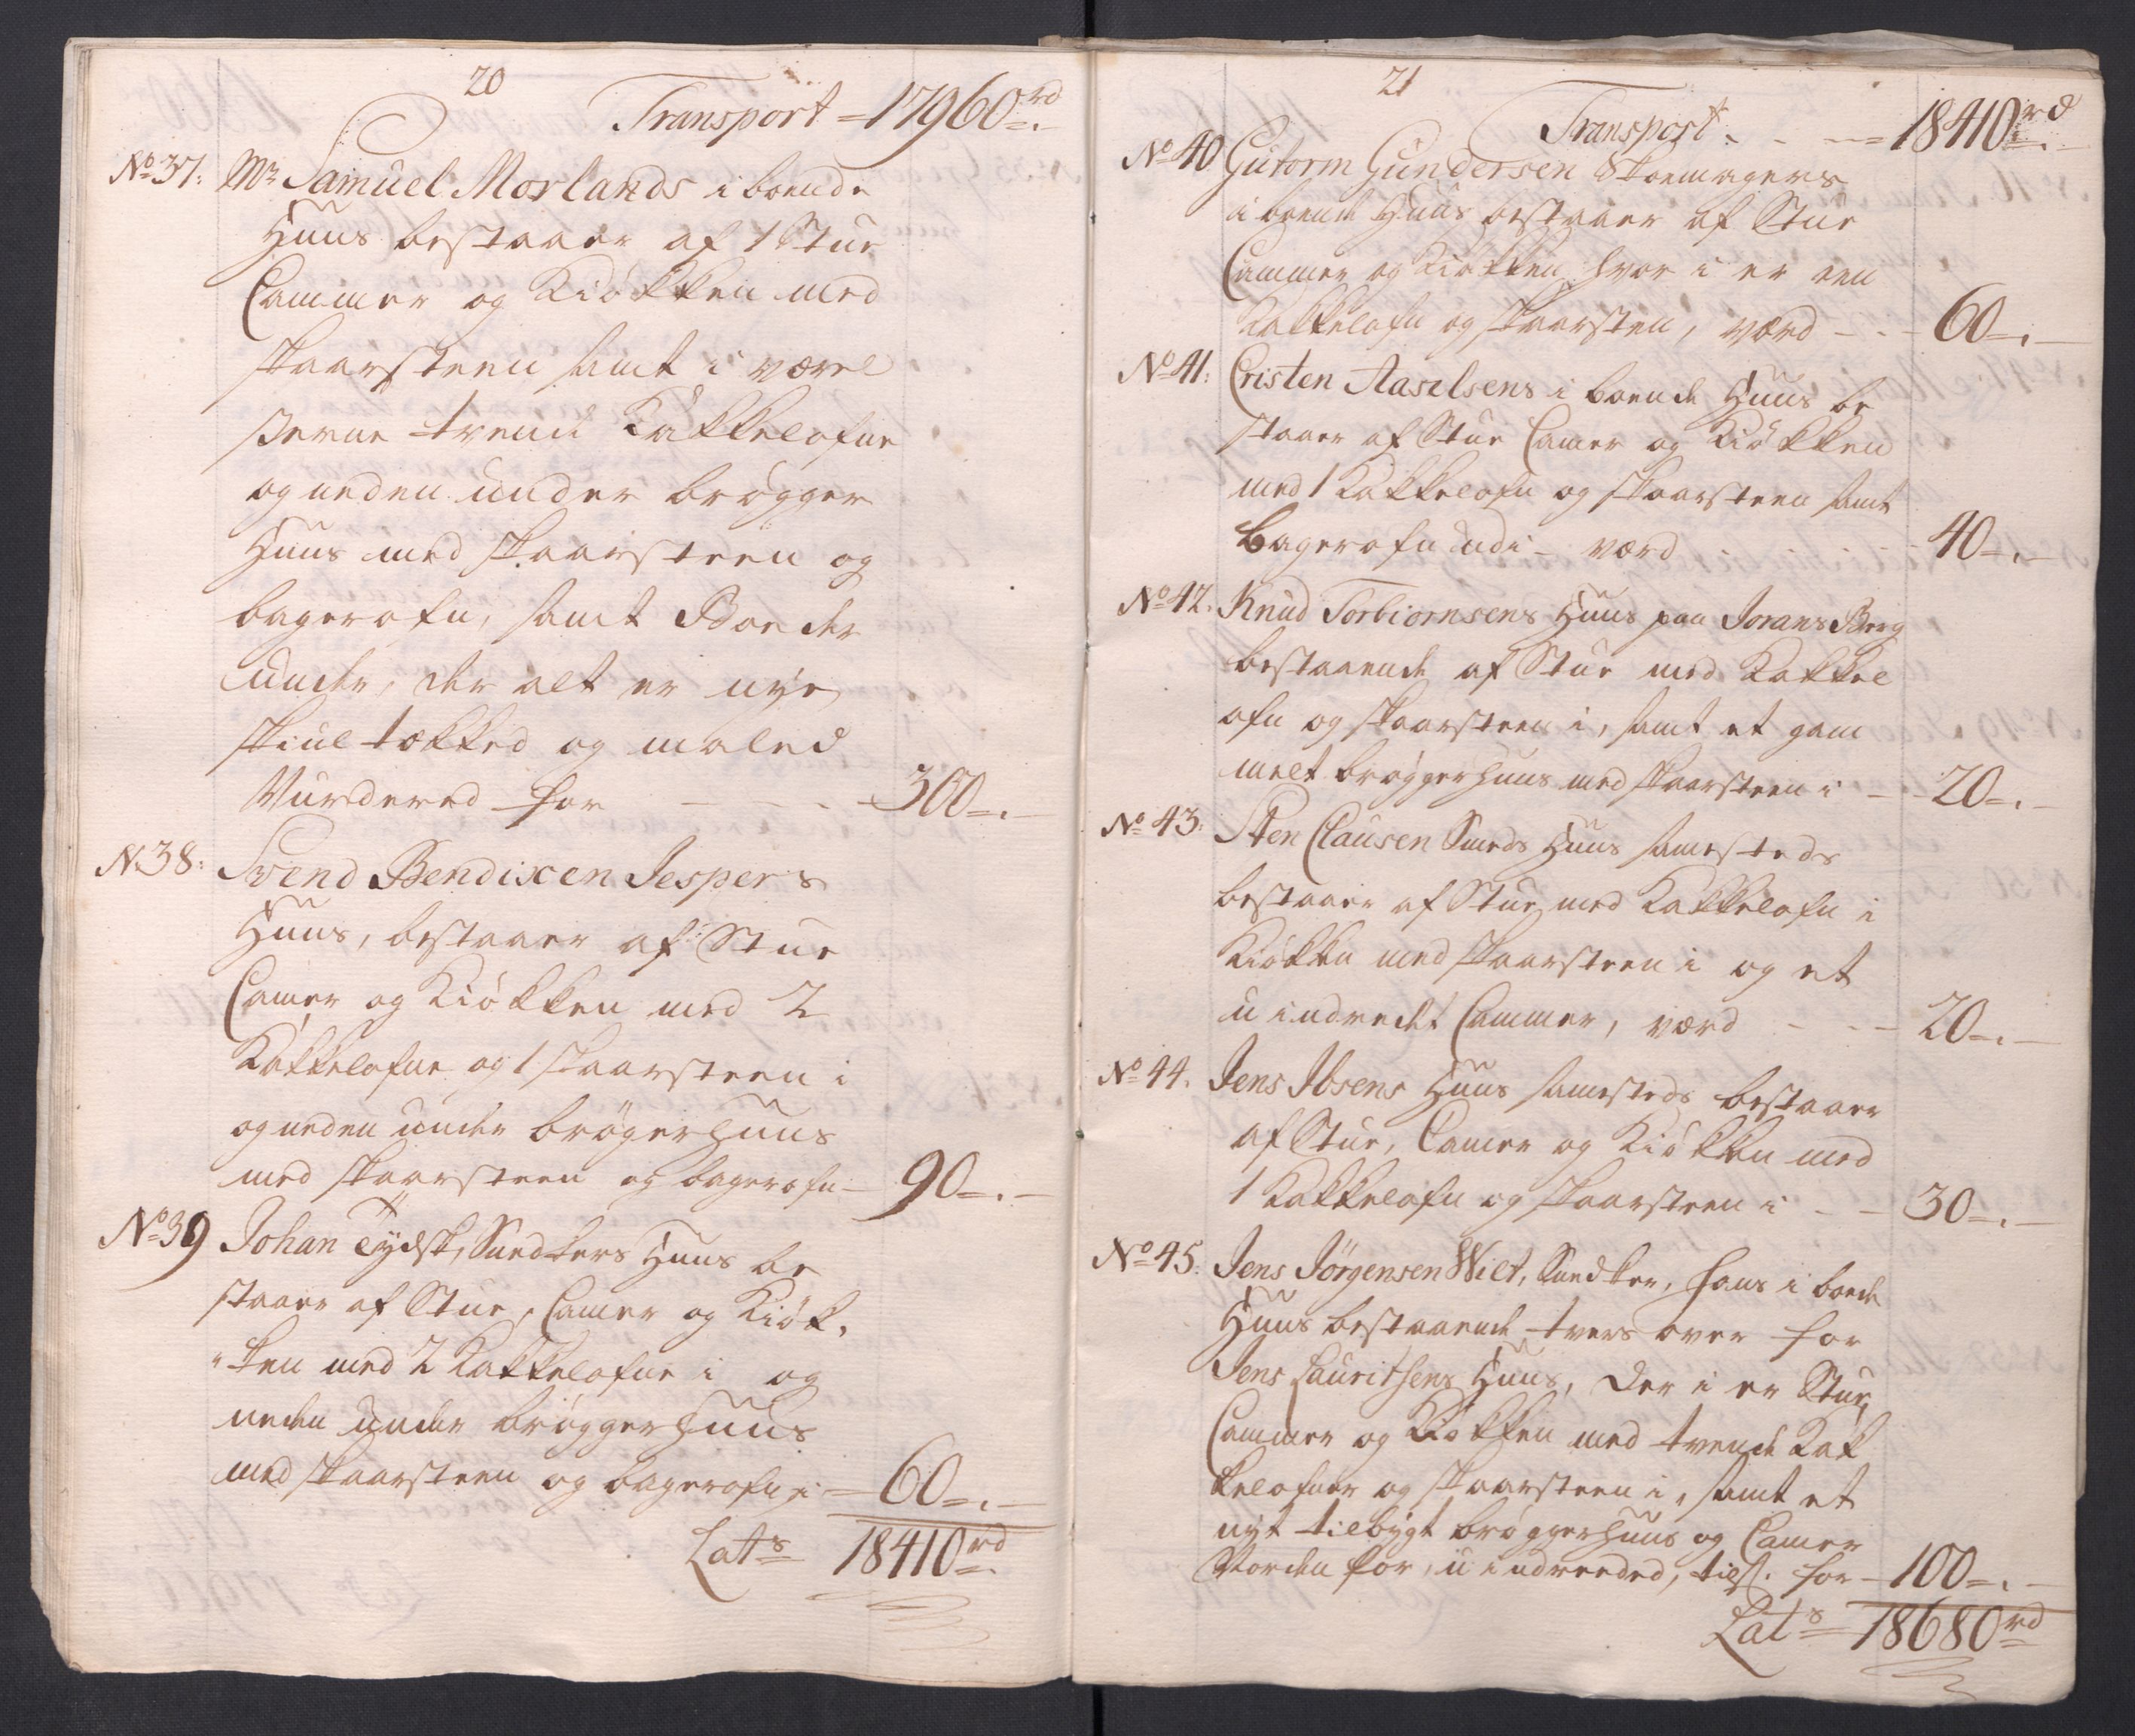 20
Transport = 17960 rd
No 37: Mr Samuel Morlands i boende
Huus bestaaer af 1 Stue
Cammer og Kiøkken med
skaarsteen samt i værel
serne tvende Kakkelofne
og neden under brøgger
Huus med skaarsteen og
bagerofn, samt Boeder
under, der alt er nye
skiul tækked og maled
Vurdered for - - - 300 -.-
N 38: Svend Bendixen Jespers
Huus, bestaaer af Stue
Camer og Kiøkken med 2
Kakkelofne og 1 skaarsteen i
og neden under brøgerhuus
med skaarsteen og bagerofn - 90 -.-
No 39 Johan Tydsk, Snedkers Huus be
staaer af Stue, Camer og Kiøk,
"ken med 2 Kakkelofne i og
neden under brøggerhuus
med skaarsteen og bagerofn i - 60 -.-
Lats 18410 rd
21
Transport - - = 18410 rd
No 40 Gutorm Gundersen Skoemagers
i boende Huus bestaaer af Stue
Cammer og Kiøkken, hvor i er een
Kakkelofn og skaarsten, værd - - 60 -.-
No 41: Cristen Aaselsens i boende Huus be
staaer af Stue Camer og Kiøkken
med 1 Kakkelofn og skaarsteen samt
bagerofn udi - værd 40 -.-
No 42. Knud Torbiornsens Huus paa Jorans Berg
bestaaende af Stue med Kakkel
ofn og skaarsteen i, samt et gam
melt brøggerhuus med skaarsteen i - 20 -.-
No 43: Sten Clausen Smeds Huus samesteds
bestaaer af Stue med Kakkelofn i
Kiøkken med skaarsteen i og et
u indredt Cammer, værd - - 20 -.-
No 44. Jens Ibsens Huus samesteds bestaaer
af Stue, Camer og Kiøkken med
1 Kakkelofn og skaarsteen i - - 30 -.-
No 45. Jens Jørgensen Wilt, Snedker, hans i boede
Huus bestaaende tvers over for
Jens Lauritsens Huus, der i er Stue,
Cammer og Kiøkken med tvende Kak
kelofner og skaarsteen i, samt et
nyt tilbygt brøggerhuus og Camer
Norden for, u indreeded, tils. for - 100 -.-
Lats = 18680 rd